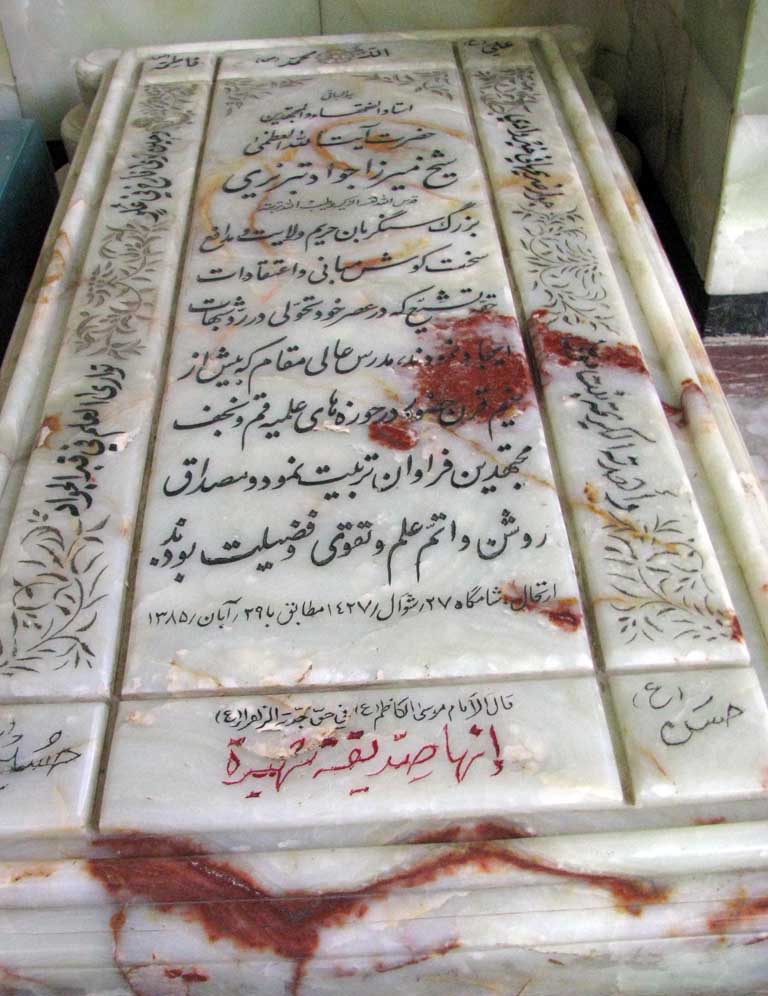 علی (ع)
الله
محمد (ص)
فاطمه
هو الباقی
استاد الفقهاء والمجتهدین
حضرت آیت الله العظمی
شیخ میرزا جواد تبریزی
بزرگ سنگربان حریم ولایت و مدافع
سخت کوش مبانی و اعتقادات
حقه تشیّع که در عصر خود تحولی در ردّ شبهات
ایجاد نمودند، مدرس عالی مقام که بیش از
نیم قرن حضور در حوزه های علمیه قم و نجف
مجتهدین فراوان تربیت نمود و مصداق
روشن و اتمّ علم و تقوی و فضیلت بودند
ارتحال: شامگاه ۲۷/شوال/۱۴۲۷ مطابق با ۲۹/آبان/۱۳۸۵
قال الامام موسی الکاظم (ع) فی حق جدته الزهراء (ع)
إنها صدّیقة شهیدة
حسن (ع)
حسین